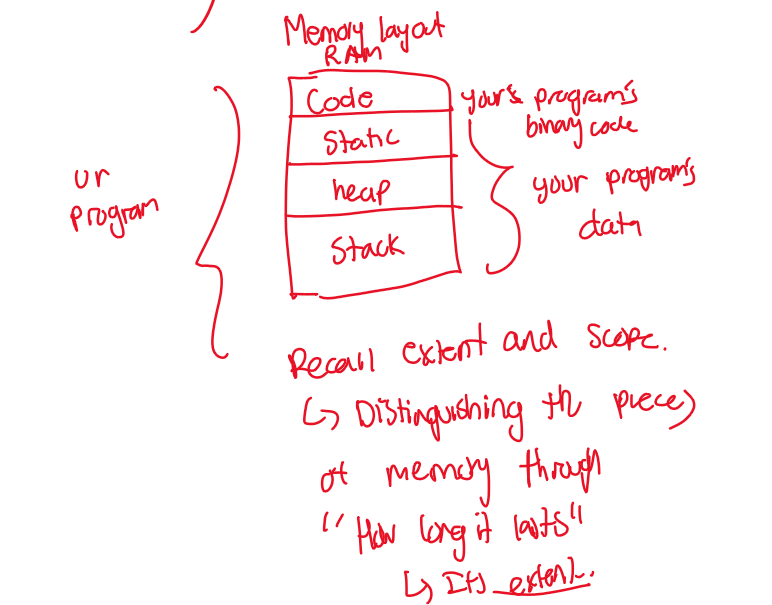 Memory layout
RAM
Code
your's program's
binary code
Static
heap
your program's
data
Stack
ur
program
Recall extent and scope.
↳ Distinguishing th pieces
of memory through
"How long it lasts"
↳ Its extent.